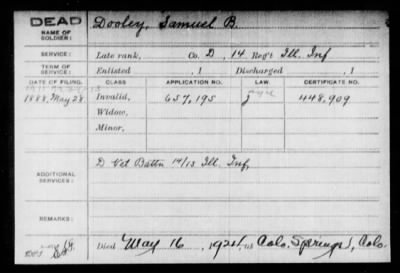 DEAD
NAME OF SOLDIER:
Dooley, Samuel B.
SERVICE:
Late rank, Co. D, 14 Reg't Ill. Inf
TERM OF SERVICE:
Enlisted , 1 Discharged , 1
DATE OF FILING. CLASS. APPLICATION NO. LAW. CERTIFICATE NO.
1888, May 28 Invalid, 657,195 448,909
Widow,
Minor,
ADDITIONAL SERVICES:
D Vet Battn 14/15 Ill. Inf,
REMARKS:
Died May 16, 1921, at Colo. Springs, Colo.